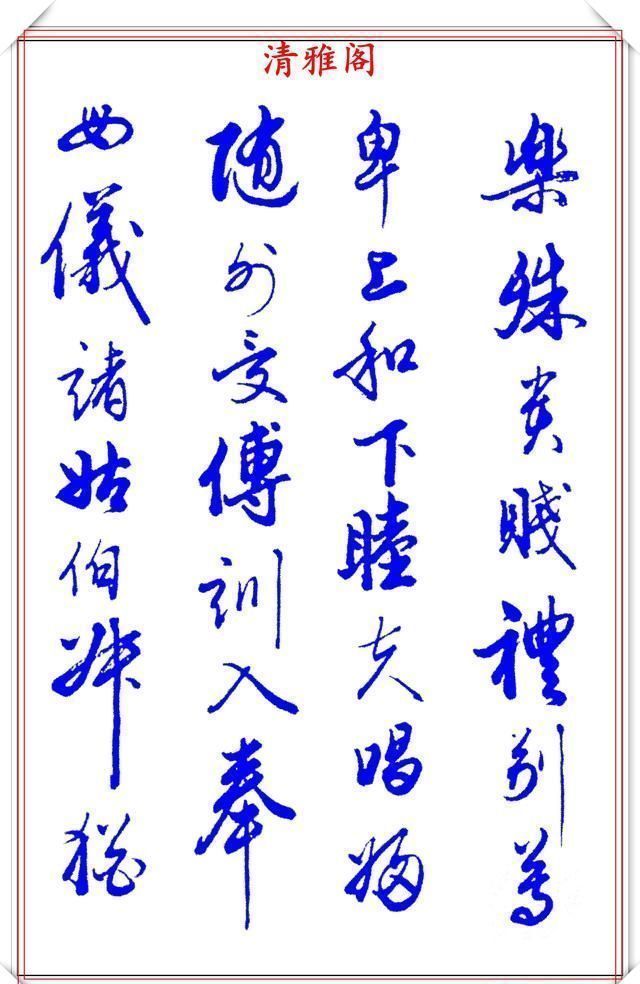 清雅阁
樂殊貴賤禮別尊
卑上和下睦夫唱婦
随外受傅訓入奉
母儀諸姑伯叔猶